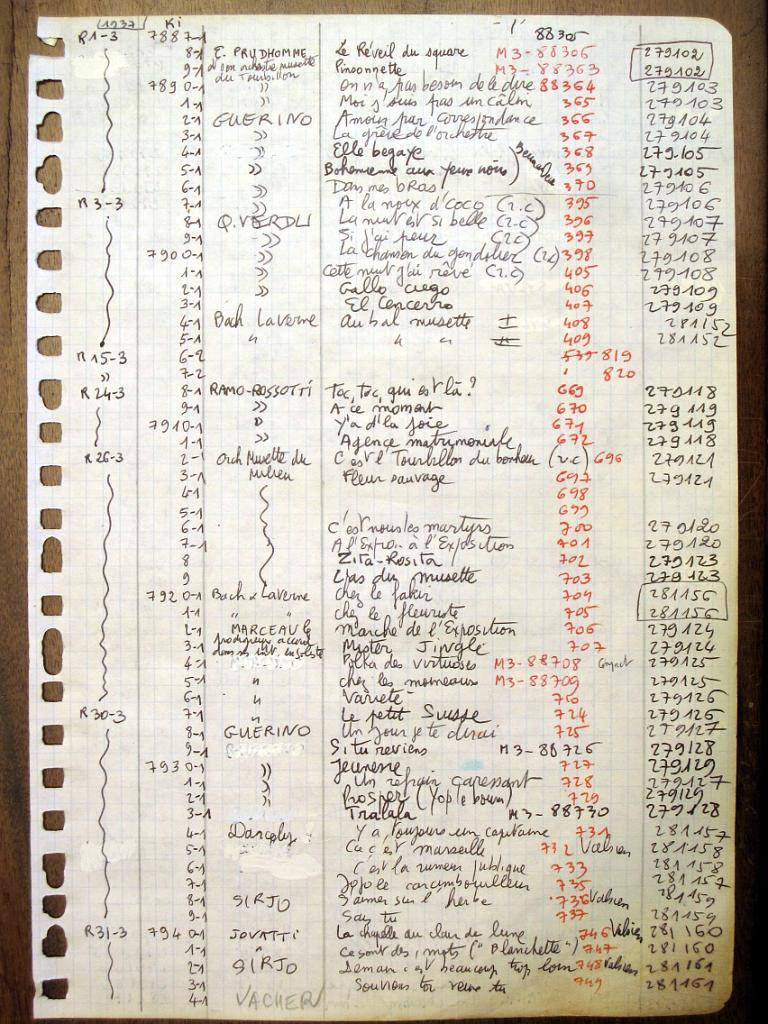 1937 Ki -1- 88305
R1-3 7887-1
8-1 E. PRUDHOMME Le Réveil du square M3-88306 279102
9-1 et son orchestre musette Pinsonnette M3-88363 279102
7890-1 du Tourbillon » on n'a pas besoin de le dire 88364 279103
1-1 » Moi j'suis pas un câlin 365 279103
2-1 GUERINO Amour par correspondance 366 279104
3-1 » La grève de l'orchestre 367 279104
4-1 » Elle begaye 368 279105
5-1 » Bohemienne aux yeux noirs 369 279105
6-1 » Dans mes bras 370 279106
R3-3 7-1 » A la noix d'coco (2.c) 395 279106
8-1 Q. VERDLI La nuit est si belle (2.c) 396 279107
9-1 » Si j'ai peur (2c) 397 279107
7900-1 » La chanson du gondolier (2c) 398 279108
1-1 » Cette nuit j'ai rêvé (2.c) 405 279108
2-1 » Gallo ciego 406 279109
3-1 El Cencerro 407 279109
4-1 Bach Laverne Au bal musette I 408 281152
5-1 " " " II 409 281152
R15-3 6-2 539 819
" 7-2 " 820
R24-3 8-1 RAMO-ROSSOTTI Toc, toc, qui est là? 669 279118
9-1 » A ce moment 670 279119
7910-1 » Y'a d'la joie 671 279119
1-1 » Agence matrimoniale 672 279118
R26-3 2-1 Orch Musette du C'est l'Tourbillon du bonheur (2.c) 696 279121
3-1 milieu Fleur sauvage 697 279121
4-1 698
5-1 699
6-1 C'est nous les martyrs 700 279120
7-1 A l'Expo.. à l'Exposition 701 279120
8 Zita-Rosita 702 279123
9 L'pas du musette 703 279123
7920-1 Bach & Laverne chez le fakir 704 281156
1-1 " " chez le fleuriste 705 281156
2-1 MARCEAU le Marche de l'Exposition 706 279124
3-1 prodigieux accord. Mister Jingle 707 279124
4-1 dans ses int. insoliste Polka des virtuoses M3-88708 279125
5-1 " chez les moineaux M3-88709 279125
6-1 " Varieté 710 279126
R30-3 7-1 " Le petit Suisse 724 279126
8-1 GUERINO Un jour je te dirai 725 279127
9-1 Si tu reviens M3-88726 279128
7930-1 » Jeunesse 727 279129
1-1 » Un refrain caressant 728 279127
2-1 » Prosper (Yop le boum) 729 279129
3-1 Tralala M3-88730 279128
4-1 Darcelys Y a, toujours un capitaine 731 281157
5-1 Ca c'est marseille 732 Valsien 281158
6-1 C'est la rumeur publique 733 281158
7-1 Jojo le carambouilleur 735 281157
8-1 SIRJO S'aimer sur l'herbe 736 Valsien 281159
9-1 Sais tu 737 281159
R31-3 7940-1 JOVATTI La chapelle au clair de lune 746 Valsien 281160
1-1 " Ce sont des, mots ("Blanchette") 747 281160
2-1 SIRJO Demain c'est beaucoup trop loin 748 Valsien 281161
3-1 Souviens toi 749 281161
4-1 VACHER